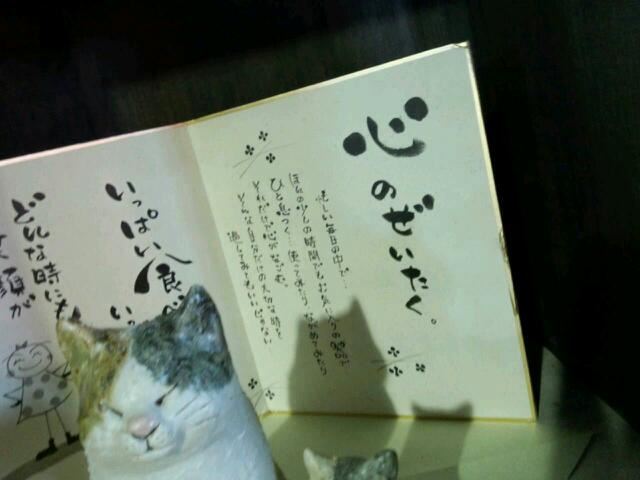 心のぜいたく。
忙しい毎日の中で…
ほんの少しの時間でもお気に入りの場所で
ひと息つく…使ってみたりながめてみたり
それだけで心がなごむ。
そんな自分だけの大切な時を
過ごしてみてもいいじゃない
いっぱい食べ
どんな時にも
笑顔が